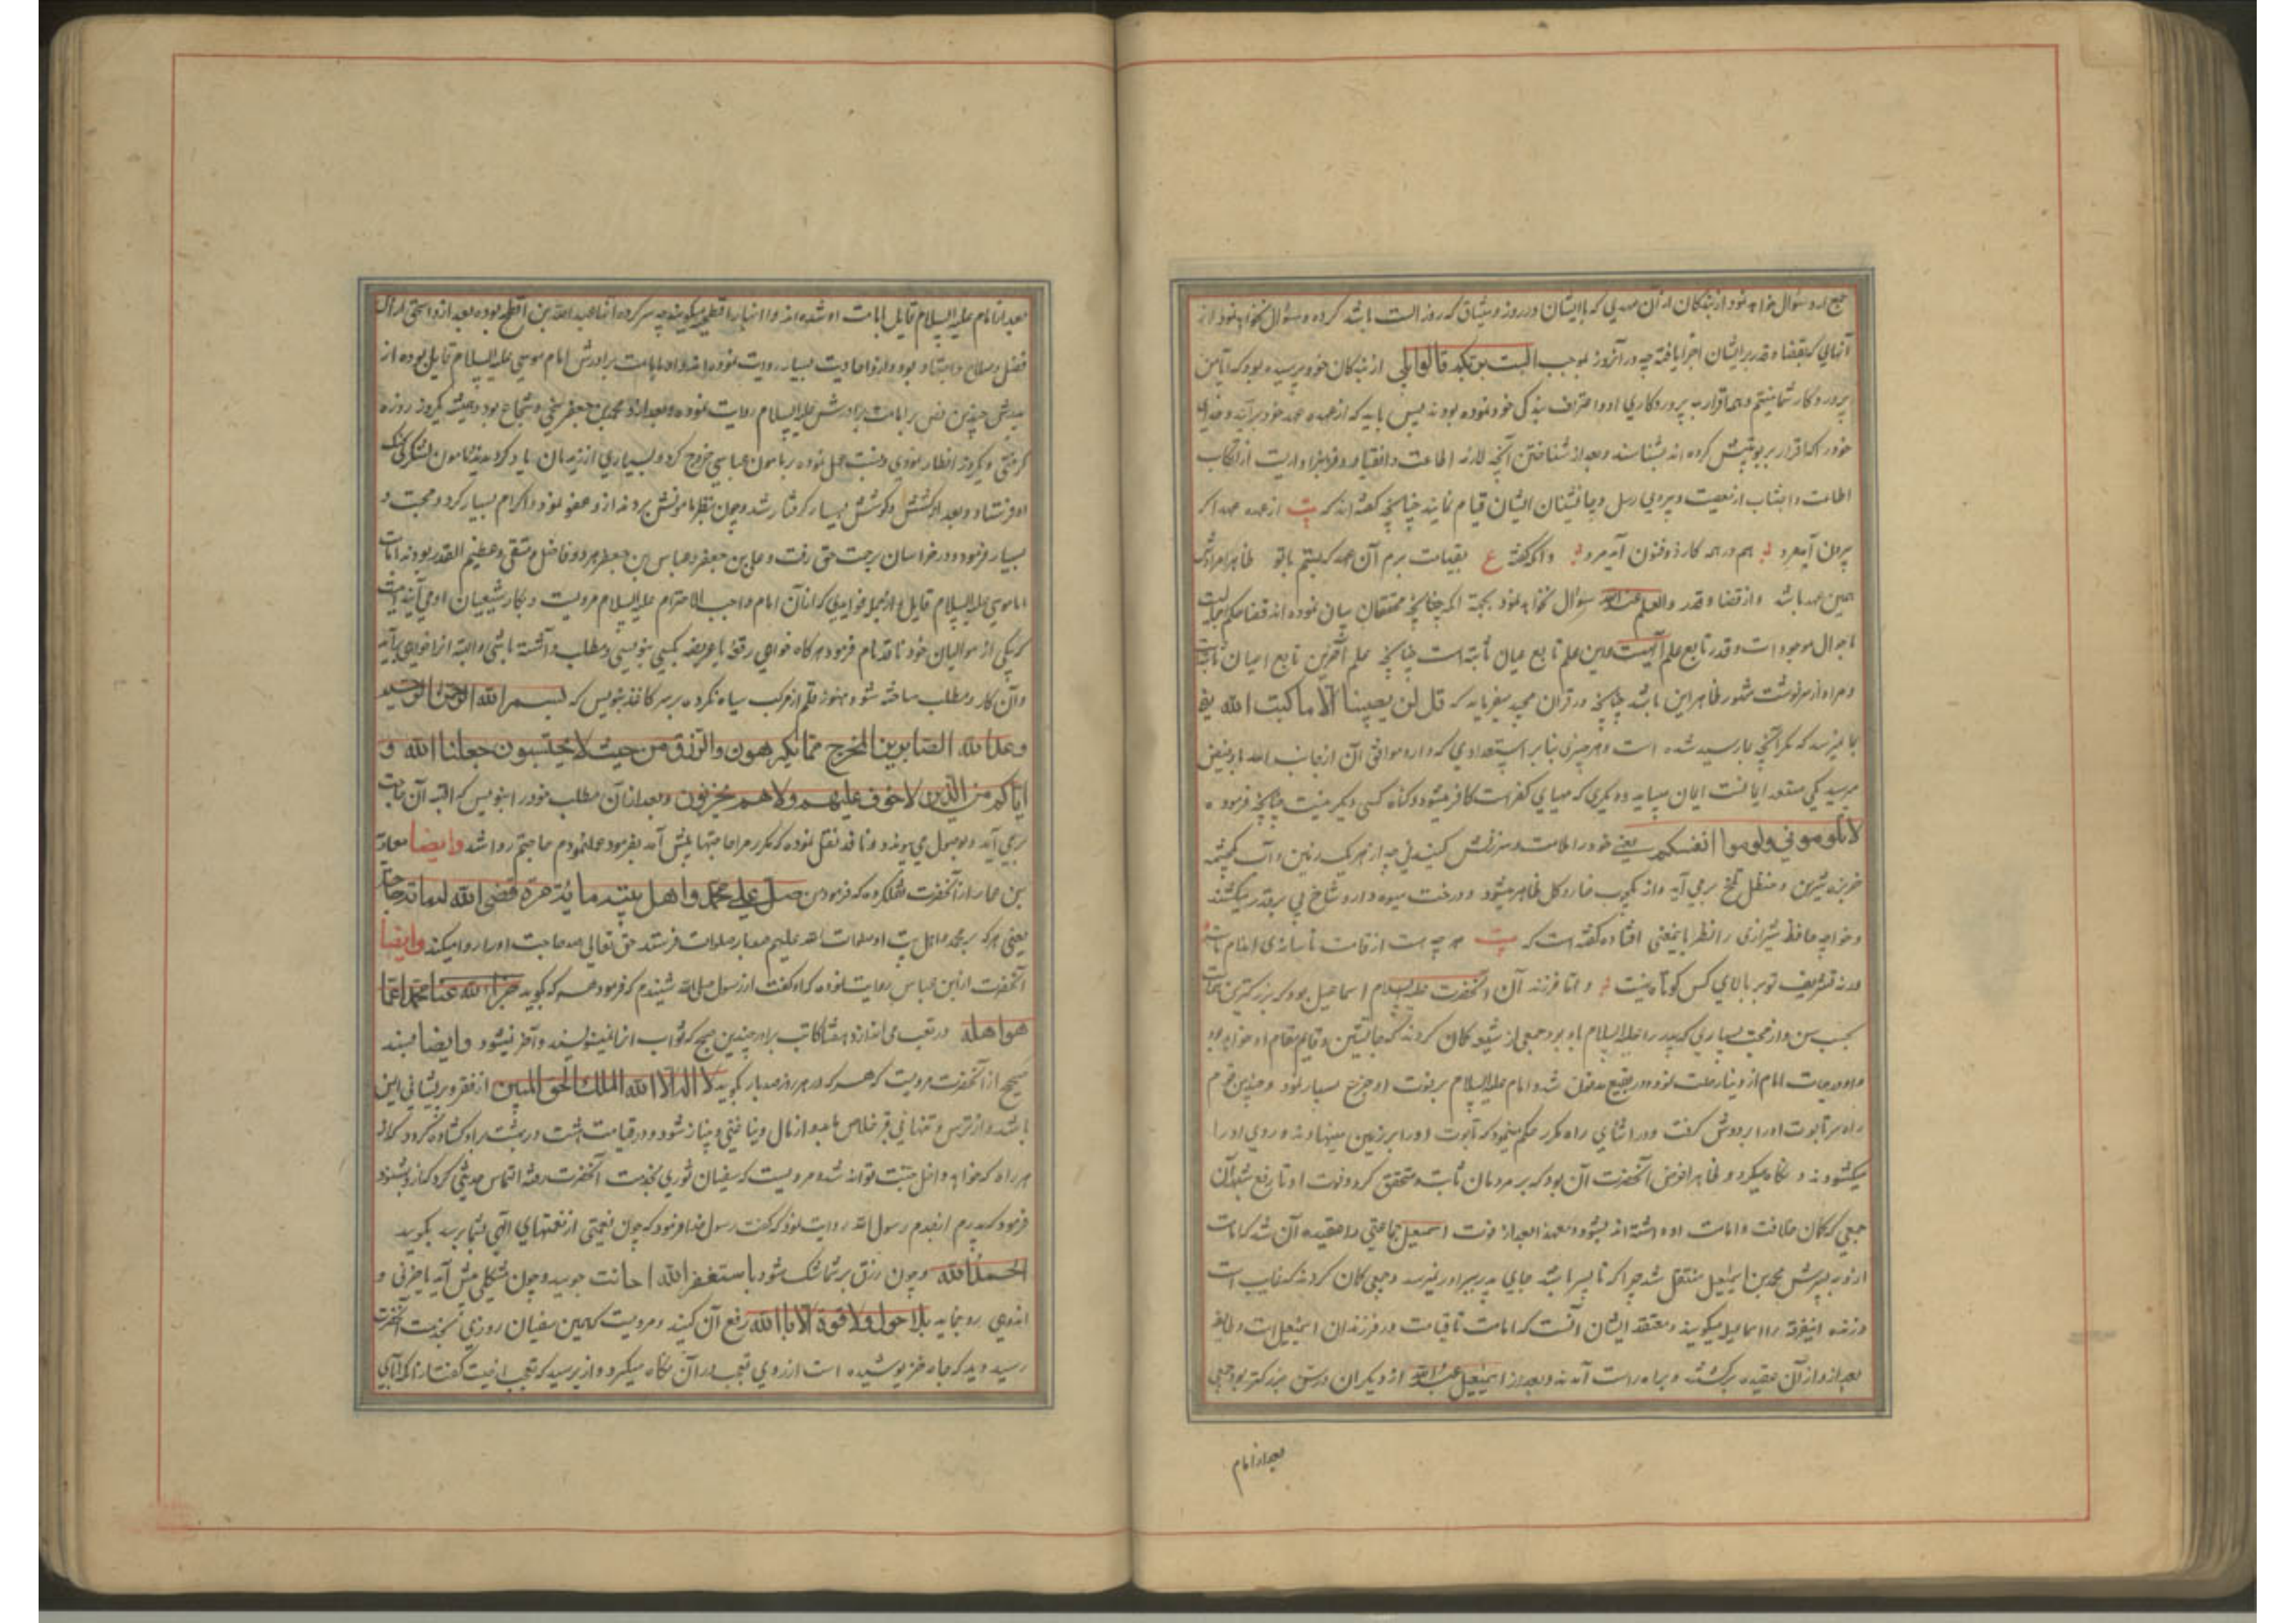 جمع آرد و سؤال خواهد نمود از بندگان از آن عهدی که با ایشان در روز میثاق که روز الست باشد کرده و سؤال نخواهد نمود از
آنهایی که قضا و قدر بر ایشان اجرا یافته چه در آنروز بموجب الست بربکم قالوا بلی از بندگان خود پرسیده بود که آیا من
پروردگار شما نیستم و همه اقرار به پروردکاری او و اعتراف ببندگی خود نموده بودند پس باید که از عهده عهد خود برآیند و خدای
خود را که اقرار بربوبیتش کرده اند بشناسند و بعد از شناختن آنچه لازمه اطاعت و انقیاد و از ارتکاب
اطاعت و اجتناب از معصیت و پیروی رسل و جانشینان ایشان قیام نمایند چنانچه گفته اند که بیت از عهده عهد اگر
برون آید مرد هم در همه کار ذوفنون آید مرد و آنکه گفته ع بقیامت برم آن عهد که بستم با تو ظاهرا مرادش
همین عهد باشد و از قضا و قدر والعلم عند الله سؤال نخواهد نمود بجهة آنکه چنانچه محققان بیان نموده اند قضا حکم
باحوال موجودات و قدر تابع علم آلهیست و این علم تابع اعیان ثابته است چنانچه علم آخرین تابع اعیان
و مراد از سرنوشت مشهور ظاهرا این باشد چنانچه در قرآن مجید میفرماید که قل لن یصیبنا الا ما کتب الله یعنی
بما نمیرسد که مگر آنچه بما رسیده شده است و هر چیزی بنابر استعدادی که دارد موافق آن از جانب الله باو فیض
میرسد یکی مستعد ایمانست ایمان میباید و دیگری که مهیای کفر است کافر میشود و گناه کسی دیگر نیست چنانچه فرموده
لا تلومونی ولوموا انفسکم یعنی خود را ملامت و سرزنش کنید نی چه از هر یک زمین و آب یک چشمه
خربزه شیرین و حنظل تلخ برمی آید و از یک چوب خار و گل ظاهر میشود و درخت میوه دار و شاخ بی بر قد میکشند
و خواجه حافظ شیرازی را نظر باینمعنی افتاده گفته است که بیت هر چه هست از قامت ناساز بی اندام ماست
ورنه تشریف تو بر بالای کس کوتاه نیست و اما فرزند آن آنحضرت علیه السلام اسماعیل بود که بزرگترین
بحسب سن و از محبت بسیاری که پدر را علیه السلام باو بود جمعی از شیعه گمان کردند که جانشین و قایم مقام او خواهد بود
و او در حیات امام از دنیا رحلت نمود و در بقیع مدفون شد و امام علیه السلام بر فوت او جزع بسیار نمود و چندین قدم
راه سر تابوت او را بر دوش گرفت و در اثنای راه مکرر حکم مینمود که تابوت او را بر زمین مینهادند و روی او را
میکشودند و نگاه میکرد و ظاهرا غرض آنحضرت آن بود که بر مردمان ثابت و متحقق گردد فوت او تا رفع شبهه آن
جمعی که گمان خلافت و امامت او داشته اند بشود و معهذا بعد از فوت اسمعیل جماعتی را عقیده آن شد که امامت
از او به پسرش محمد بن اسمعیل منتقل شد چرا که تا پسر باشد جای پدر ببرادر نمیرسد و جمعی گمان کردند که غایب است
و زنده اینفرقه را اسماعیلیه میگویند و معتقد ایشان آنست که امامت تا قیامت در فرزندان اسمعیل است و طایفه
بعد از او از آن عقیده برگشتند و براه راست آمدند و بعد از اسمعیل عبد الله از دیگران بسن بزرگتر بود و جمعی
بعد از امام
بعد از امام علیه السلام قایل بامامت او شده اند و آنها را فطحیه میگویند چه سرکرده آنها عبد الله بن افطح بوده بعد از او اسحق که اهل
فضل و صلاح و اجتهاد بود و از او احادیث بسیار روایت نموده اند و او بامامت برادرش امام موسی علیه السلام قایل بوده از
پدرش چندین نص بر امامت برادرش علیه السلام روایت نموده و بعد از او محمد بن جعفر سخی و شجاع بود و همیشه یکروز روزه
گرفتی و یکروز افطار نمودی و بر مامون عباسی خروج کرد و بسیاری از زیدیان با او گردیدند مامون لشکر بجنگ
او فرستاد و بعد از کشش و کوشش بسیار گرفتار شد و چون بنظر مامونش بردند از او عفو نمود و اکرام بسیار کرد و محبت و
بسیار فرمود و در خراسان برحمت حق رفت و علی بن جعفر و عباس بن جعفر هر دو فاضل و متقی و عظیم القدر بودند بامامت
امام موسی علیه السلام قایل از جمله فوایدی که از آن امام واجب الاحترام علیه السلام مرویست و بکار شیعیان او می آید اینست
که یکی از موالیان خود نافذ نام فرمود هرگاه خواهی رقعه یا عریضه بکسی بنویسی و مطلب داشته باشی و البته از آنخواهی برآید
و آن کار و مطلب ساخته شود هنوز قلم از مرکب سیاه نکرده بر سر کاغذ بنویس که بسم الله الرحمن الرحیم
وعد الله الصابرین المخرج مما یکرهون والرزق من حیث لا یحتسبون جعلنا الله و
ایاکم من الذین لا خوف علیهم ولا هم یحزنون و بعد از آن مطلب خود را بنویس که البته آن حاجت
برمی آید و بوصول می پیوندد و نافذ نقل نموده که مکرر مرا حاجتها پیش آمد بفرموده عمل نمودم حاجتم روا شد و ایضا معاویة
بن عمار از آنحضرت نقل کرده که فرمود من صلی علی محمد و اهل بیته مائة مرة قضی الله له مائة حاجة
یعنی هر که بر محمد و اهل بیت او صلوات الله علیهم صد بار صلوات فرستد حق تعالی صد حاجت او را روا میکند و ایضا
آنحضرت از ابن عباس روایت نموده که او گفت از رسول صلی الله شنیدم که فرمود هر که بگوید جزا الله عنا محمدا بما
هو اهله در تعب می اندازد هفتاد کاتب را در چندین صبح که ثواب آنرا مینویسند و آخر نمیشود و ایضا بسند
صحیح از آنحضرت مرویست که هر که در هر روز صد بار بگوید لا اله الا الله الملک الحق المبین از فقر و پریشانی ایمن
باشد و از ترس و تنهایی قبر خلاص یابد و از مال دنیا غنی و بی نیاز شود و در قیامت هشت در بهشت بر او گشاده گردد که از
هر راه که خواهد داخل جنت تواند شد و مرویست که سفیان ثوری بخدمت آنحضرت رفته التماس حدیثی کرد که از او بشنود
فرمود که پدرم از جدم رسول الله روایت نمود که گفت رسول خدا فرمود که چون نعمتی از نعمتهای الهی بشما برسد بگویید
الحمد لله و چون رزق بر شما تنگ شود باستغفر الله اعانت جویید و چون مشکلی پیش آید یا حزنی و
اندوهی رو نماید بلا حول ولا قوة الا بالله رفع آن کنید و مرویست که همین سفیان روزی بخدمت آنحضرت
رسید دید که جامه خز پوشیده است از روی تعجب در آن نگاه میکرد و از او پرسید که تعجب از چیست گفت